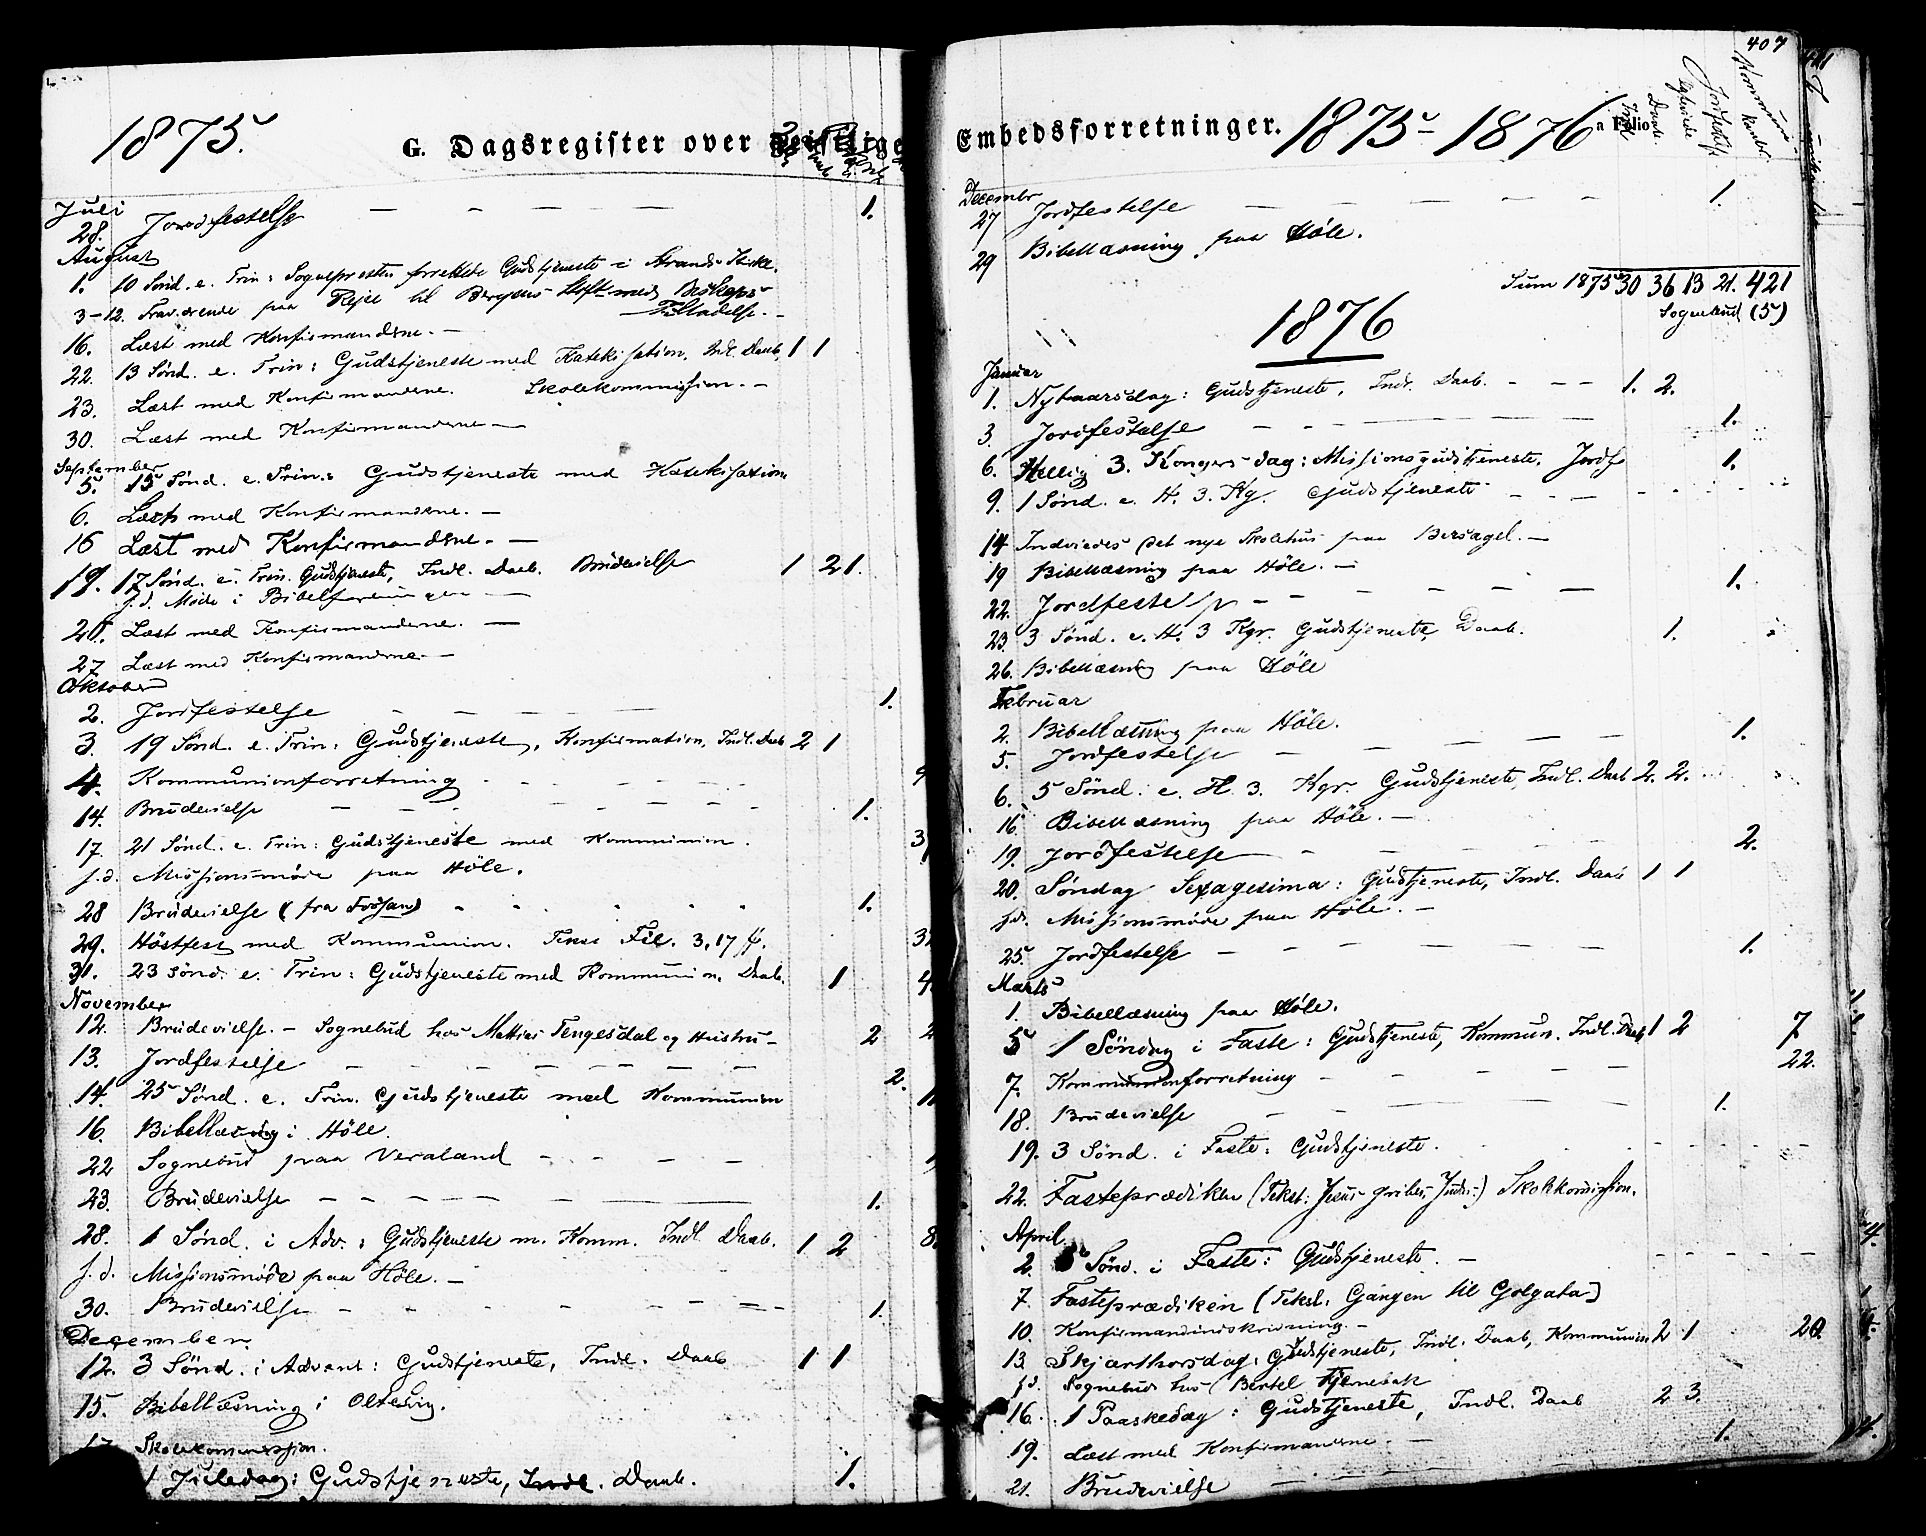 1875.
G. Dagsregister over Geistlige
Juli
28. Jordfestelse — — — — — 1.
August
1. 10 Sønd. e. Trin: Sognepresten forrettede Gudstjeneste i Strands Kirke.
3-12. Fraværende paa Rejse til Bergens Stift med Biskops
Tilladelse. -
16. Læst med Konfirmanderne. -
22. 13 Sønd. e. Trin: Gudstjeneste med Katekisation, Indl. Daab, 1 1
23. Læst med Konfirmanderne. Skolekommission. -
30. Læst med Konfirmanderne —
September
5. 15 Sønd. e. Trin.: Gudstjeneste med Katekisation
6. Læst med Konfirmanderne. —
16 Læst med Konfirmanderne. —
19. 17 Sønd. e. Trin. Gudstjeneste, Indl. Daab. Brudevielse 1 2 1.
s. d. Møde i Bibelforeningen —
20. Læst med Konfirmanderne. —
27 Læst med Konfirmanderne. —
Oktober
2. Jordfestelse — — — — — 1.
3. 19 Sønd. e. Trin: Gudstjeneste, Konfirmation, Indl. Daab 2 1
4. Kommunionforretning - - - - 9
14. Brudevielse — — — — — 1.
17. 21 Sønd. e. Trin: Gudstjeneste med Kommunion. 3
s. d. Missionsmøde paa Höle.
28 Brudevielse (fra Fossan) - - - - 1.
29. Höstfest med Kommunion. Text Fil. 3, 17 ff. 3
31. 23 Sønd. e. Trin: Gudstjeneste med Kommunion, Daab. 1 4
November
12. Brudevielse. - Sognebud hos Mathias Tengesdal og Hustru - 2 2
13. Jordfestelse — — — — — 2.
14. 25 Sønd. e. Trin. Gudstjeneste med Kommunion 1
16. Bibellæsning i Höle.
22 Sognebud paa Veraland - - - -
23. Brudevielse — — — — — 1.
28. 1 Sønd. i Adv.: Gudstjeneste m. Komm. Indl. Daab. 1 2 8
s. d. Missionsmøde paa Höle. -
30. Brudevielse - - - - - 1.
December
12. 3 Sønd. i Advent: Gudstjeneste, Indl. Daab 1 1
15. Bibellæsning i Oltedvig.
17 Skolekommission.
1 Juledag: Gudstjeneste, Indl. Daab. 1.
407
Embedsforretninger. 1875-1876 a Folio
Indl. Daab Jordfestelse
December
27 Jordfestelse — — — — — 1.
29 Bibellæsning paa Höle.
Sum 1875 30 36 13 21. 421
Sognebud (5)
1876
Januar
1. Nytaarsdag: Gudstjeneste, Indl. Daab. - - - 1. 2.
3. Jordfestelse - - - - 1.
6. Hellig 3. Kongers dag: Missionsgudstjeneste. Jordf 1.
9. 1 Sønd. e. H. 3. Kg. Gudstjeneste - - -
14 Indviedes det nye Skolehus paa Bersagel. —
19 Bibellæsning paa Höle. -
22. Jordfestelse - - - - - 1.
23. 3 Sønd. e. H. 3 Kgr. Gudstjeneste, Daab. 1.
26. Bibellæsning paa Höle
Februar
2. Bibellæsning paa Höle.
5. Jordfestelse — — — — — 1.
6. 5 Sønd. e. H. 3. Kgr. Gudstjeneste, Indl. Daab 2. 2.
16. Bibellæsning paa Höle. -
19. Jordfestelse — - - - 2.
20. Søndag Sexagesima: Gudstjeneste, Indl. Daab 1 1
s. d. Missionsmøde paa Höle. -
25. Jordfestelse - - - - - 1.
Marts
1. Bibellæsning paa Höle.
5 1 Søndag i Faste: Gudstjeneste, Kommun. Indl. Daab 1 2 7
7. Kommunionforretning - - - - 22.
18. Brudevielse — — — — — 1.
19. 3 Sønd. i Faste: Gudstjeneste.
22. Fasteprædiken (Tekst: Jesus gribes, Judas) Skolekommission.
April
2. Sønd. i Faste: Gudstjeneste. —
7. Fasteprædiken (Tekst: Gangen til Golgata)
10. Konfirmandindskrivning. -
13. Skjærthorsdag: Gudstjeneste, Indl. Daab, Kommunion 2 1 20.
s. d. Sognebud hos Bertel
16. 1 Paaskedag: Gudstjeneste, Indl. Daab 2 3.
19. Læst med Konfirmanderne —
21. Brudevielse — — — — 1.